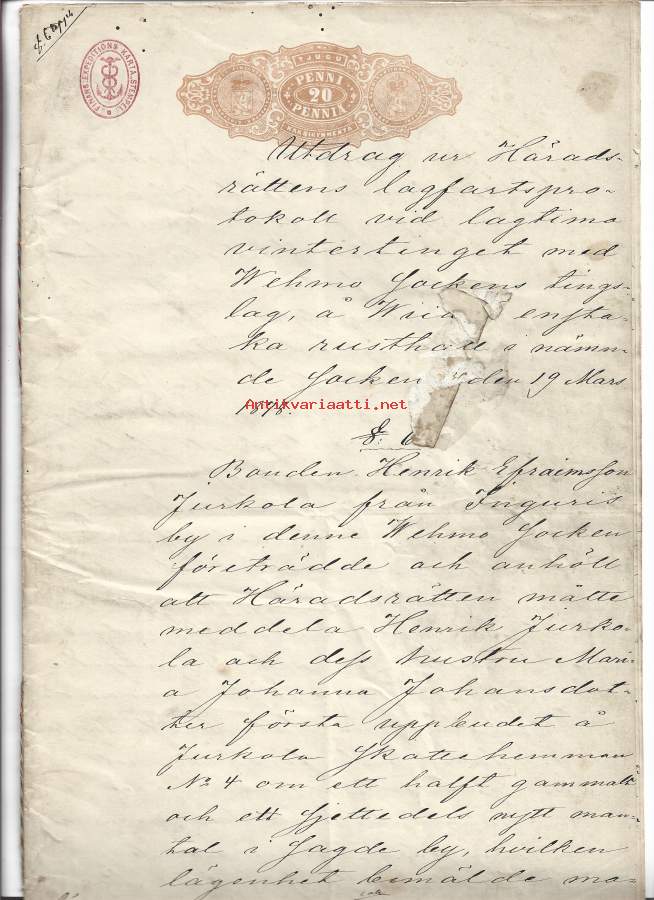 FINANS EXPEDITIONS KARTA STEMPEL
TJUGU
PENNI
20
PENNIÄ
KAKSIKYMMENTÄ
Utdrag ur Härads-
rättens lagfartspro-
tokoll vid lagtima
vintertinget med
Wehmo Sockens tings-
lag, å ensta-
ka rusthåll i nämn-
de Socken den 19 Mars
Antikvariaatti.net
§ 6
Bonden Henrik Efraimsson
Jurkola från Inguris
by i denne Wehmo Socken
företrädde och anhöll
att Häradsrätten måtte
meddela Henrik Jurko-
la och dess hustru Mari-
a Johanna Johansdot-
ter första uppbudet å
Jurkola Skattehemman
No 4 om ett halft gammalt
och ett sjettedels nytt man-
tal i Sagde by, hvilken
lägenhet bemälde ma-